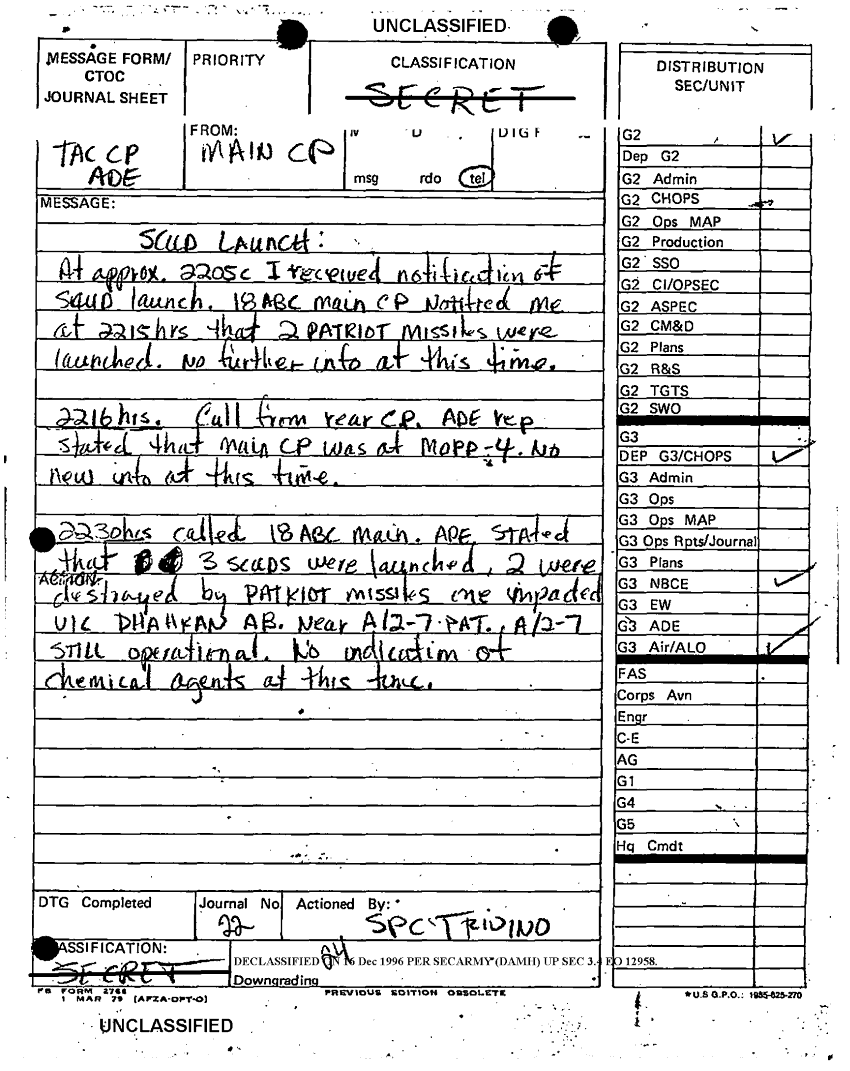 UNCLASSIFIED
MESSAGE FORM/
CTOC
JOURNAL SHEET
PRIORITY
CLASSIFICATION
SECRET
DISTRIBUTION
SEC/UNIT
TAC CP
ADE
FROM:
MAIN CP
msg rdo tel
MESSAGE:
SCUD LAUNCH:
At approx. 2205c I received notification of
SCUD launch. 18 ABC main CP Notified me
at 2215hrs that 2 PATRIOT MISSILES were
launched. No further info at this time.
2216 hrs. Call from rear CP. ADE rep
stated that main CP was at MOPP-4. No
new info at this time.
2230hrs called 18 ABC main. ADE STATED
that 3 SCUDS were launched, 2 were
ACTION:
destroyed by PATRIOT MISSILES one impacted
VIC DHAHRAN AB. Near A/2-7 PAT., A/2-7
STILL operational. No indication of
chemical agents at this time.
G2
Dep G2
G2 Admin
G2 CHOPS
G2 Ops MAP
G2 Production
G2 SSO
G2 CI/OPSEC
G2 ASPEC
G2 CM&D
G2 Plans
G2 R&S
G2 TGTS
G2 SWO
G3
DEP G3/CHOPS
G3 Admin
G3 Ops
G3 Ops MAP
G3 Ops Rpts/Journal
G3 Plans
G3 NBCE
G3 EW
G3 ADE
G3 Air/ALO
FAS
Corps Avn
Engr
C-E
AG
G1
G4
G5
Hq Cmdt
DTG Completed
Journal No
22
Actioned By:
SPC TRIVINO
ASSIFICATION:
SECRET
24
DECLASSIFIED ON 16 Dec 1996 PER SECARMY (DAMH) UP SEC 3.4 EO 12958.
Downgrading
FB FORM 2766
1 MAR 79 (AFZA-DPT-O)
PREVIOUS EDITION OBSOLETE
*U.S G.P.O.: 1985-625-270
UNCLASSIFIED